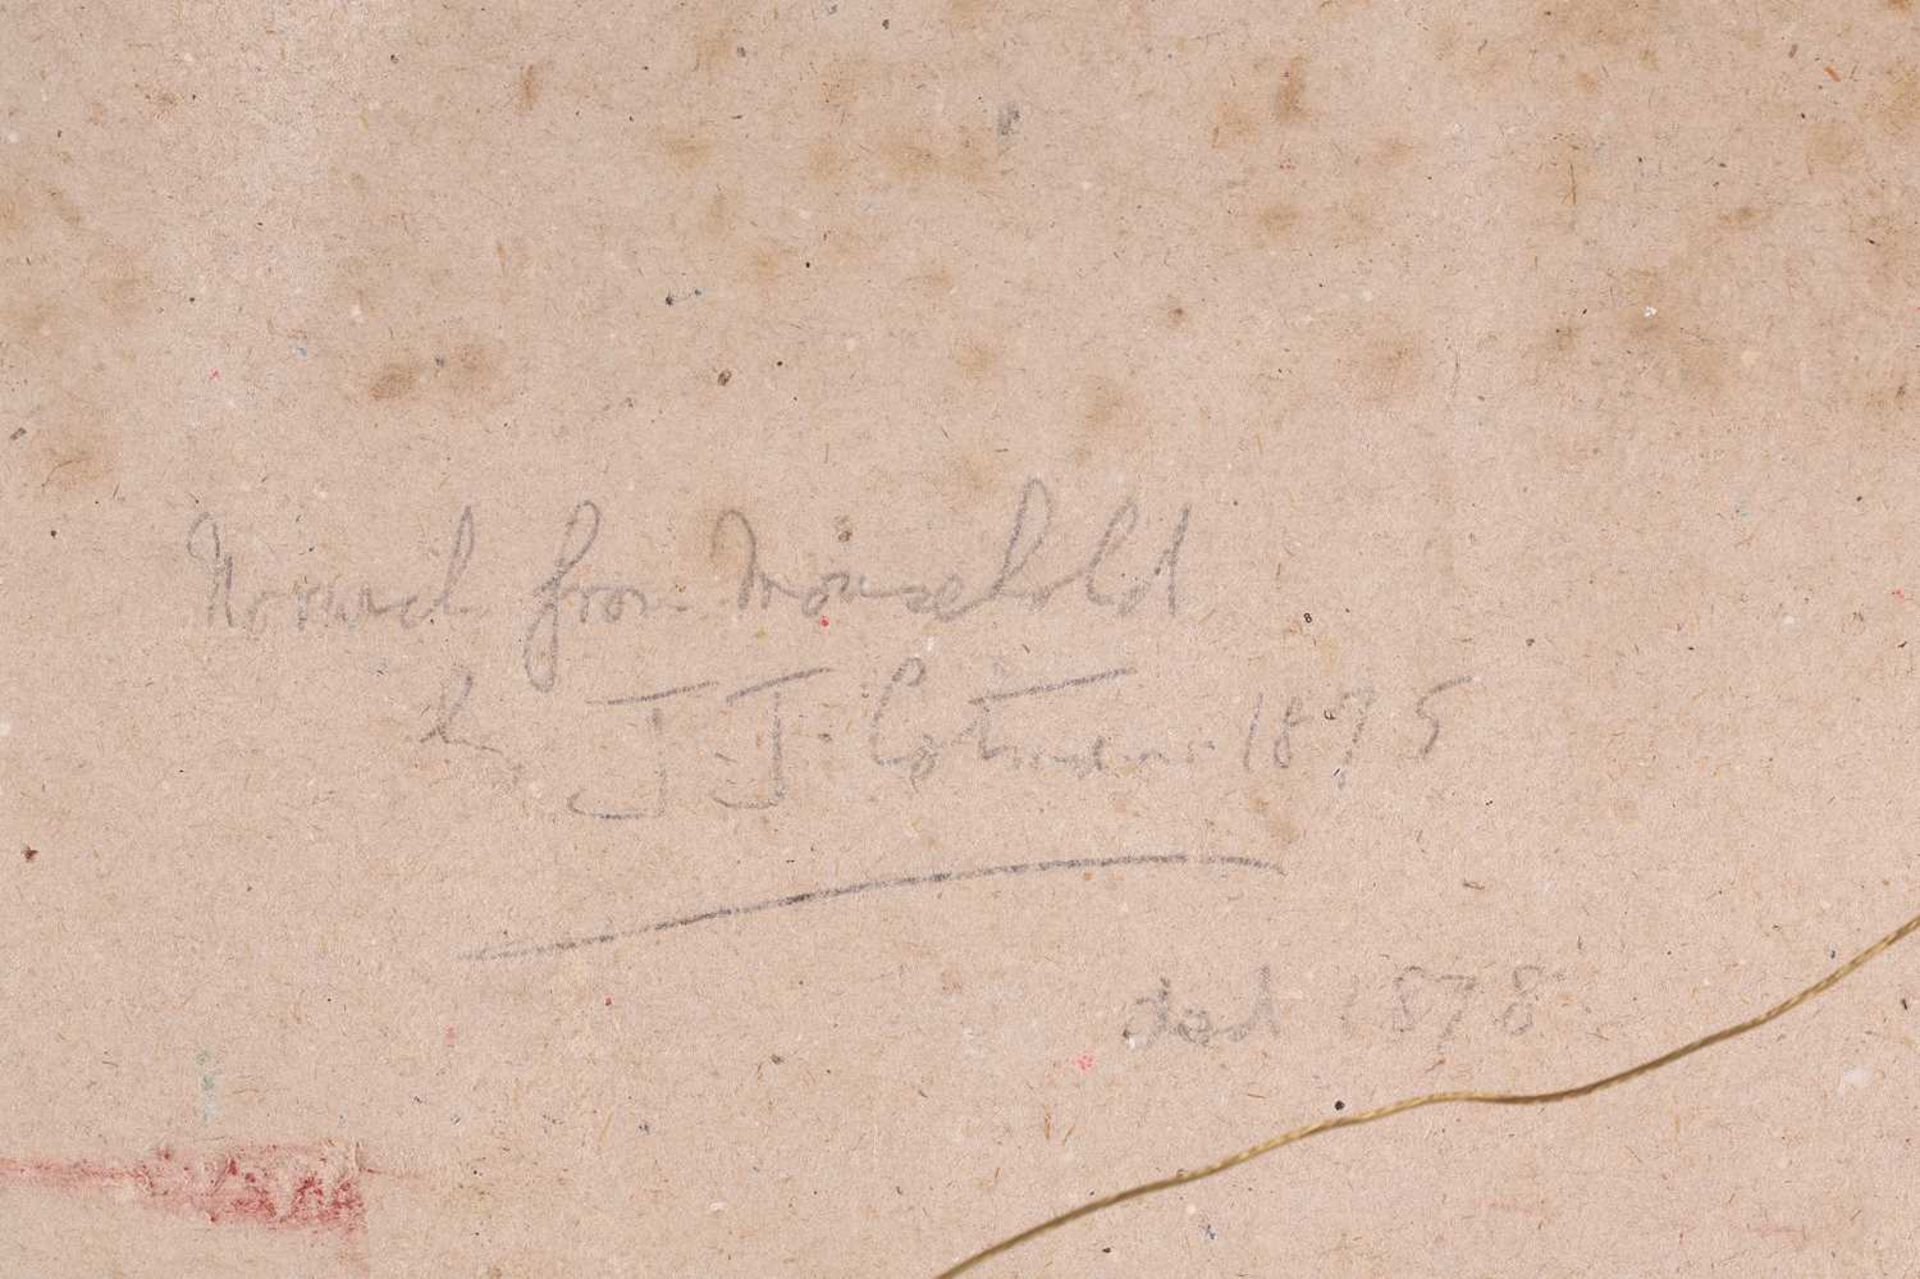 Norwich from Mousehold
by J. J. Cotman 1875
died 1878